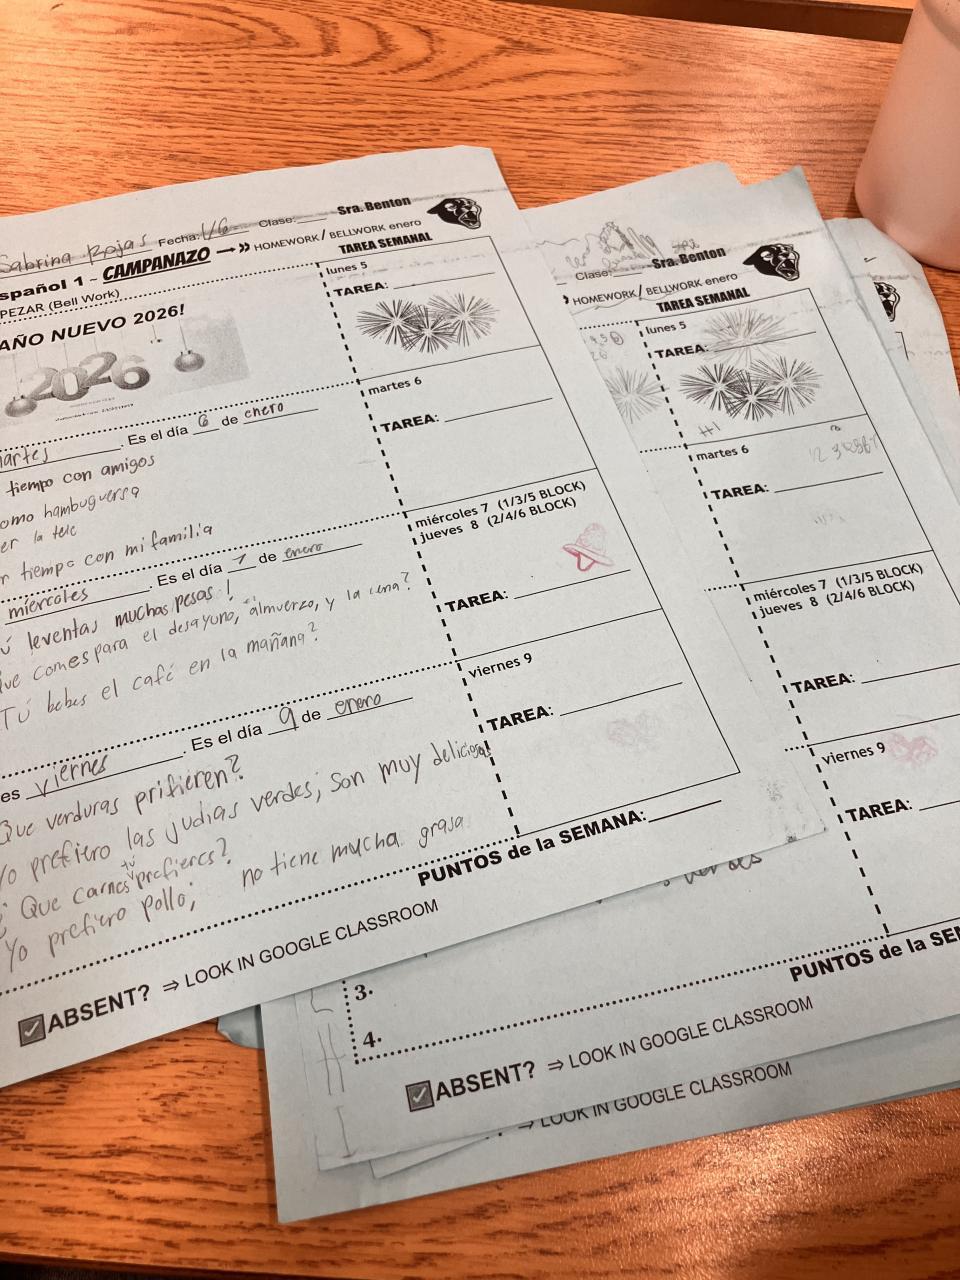 Sabrina Rojas Fecha: 1/6 Clase: Sra. Benton
spañol 1 - CAMPANAZO HOMEWORK/ BELLWORK enero
PEZAR (Bell Work)
TAREA SEMANAL
AÑO NUEVO 2026!
2026
artes Es el día 6 de enero
tiempo con amigos
omo hambuguersa
er la tele
r tiempo con mi familia
miércoles Es el día 7 de enero
ú leventas muchas pesas!
ue comes para el desayuno, el almuerzo, y la cena?
Tú bebes el café en la mañana?
es viernes Es el día 9 de enero
Que verduras prifieren?
Yo prefiero las judias verdes; son muy deliciosas
¿Que carnes tú prefieres?
Yo prefiero pollo; no tiene mucha grasa
lunes 5
TAREA:
martes 6
TAREA:
miércoles 7 (1/3/5 BLOCK)
jueves 8 (2/4/6 BLOCK)
TAREA:
viernes 9
TAREA:
PUNTOS de la SEMANA:
ABSENT? ⇒ LOOK IN GOOGLE CLASSROOM
Clase: Sra. Benton
HOMEWORK/ BELLWORK enero
TAREA SEMANAL
lunes 5
TAREA:
HI
martes 6
TAREA:
miércoles 7 (1/3/5 BLOCK)
jueves 8 (2/4/6 BLOCK)
TAREA:
viernes 9
TAREA:
3.
4.
PUNTOS de la SEM
ABSENT? ⇒ LOOK IN GOOGLE CLASSROOM
? ⇒ LOOK IN GOOGLE CLASSROOM